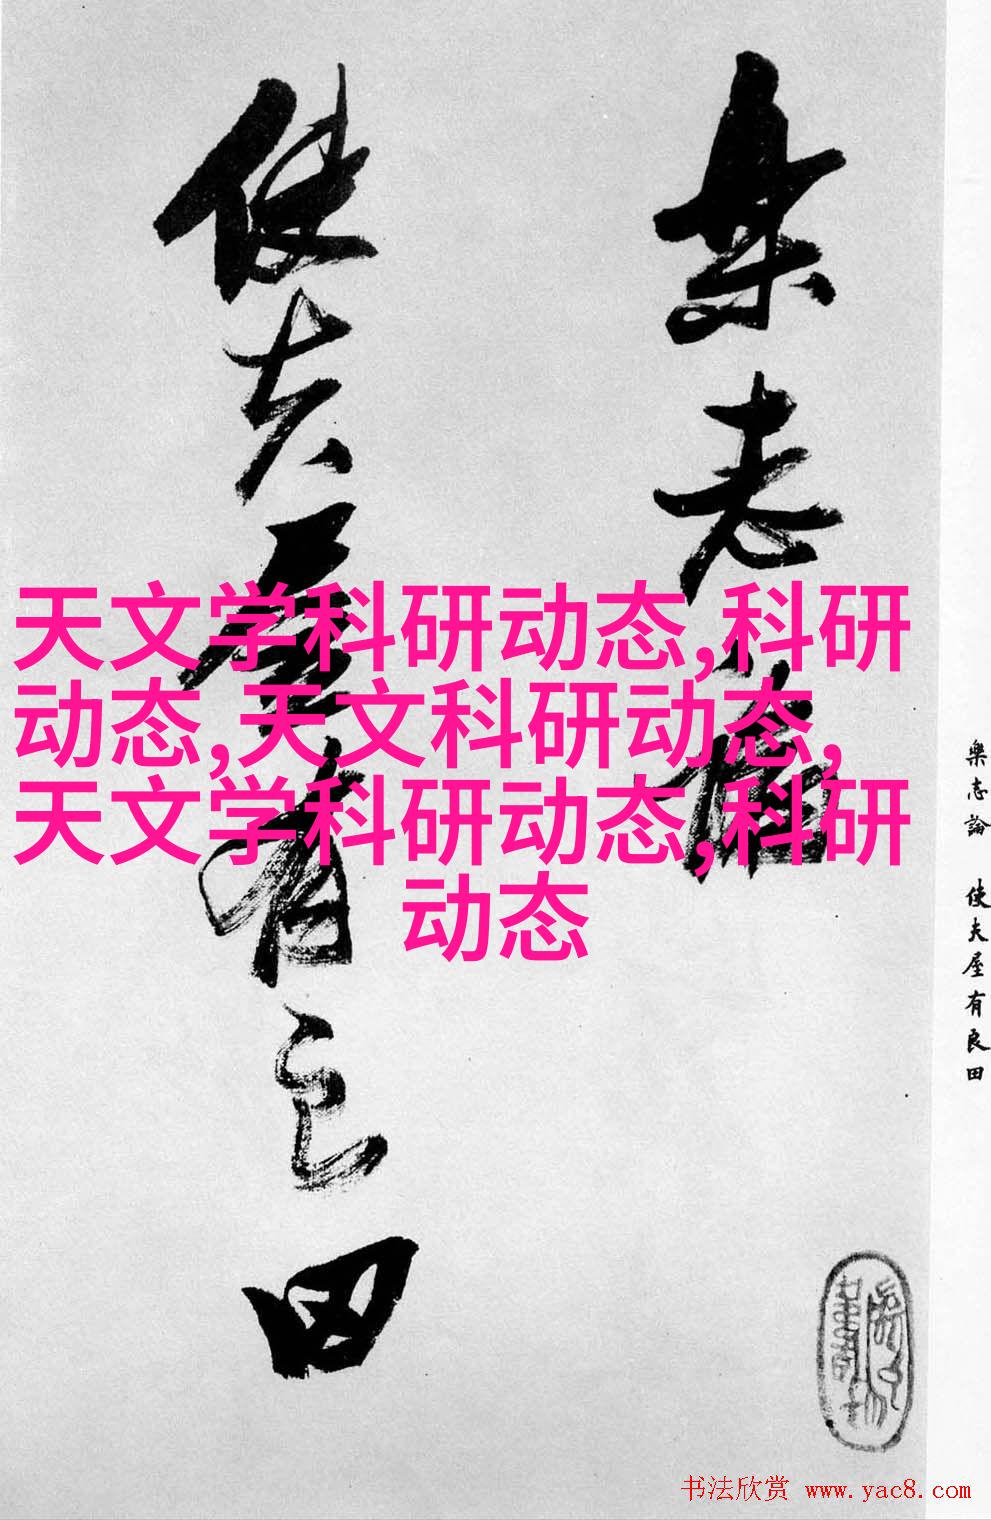 樂志論
使夫屋有良田
天文学科研动态,科研
动态,天文科研动态,
天文学科研动态,科研
动态
樂志論 使夫屋有良田
书法欣赏 www.yac8.com